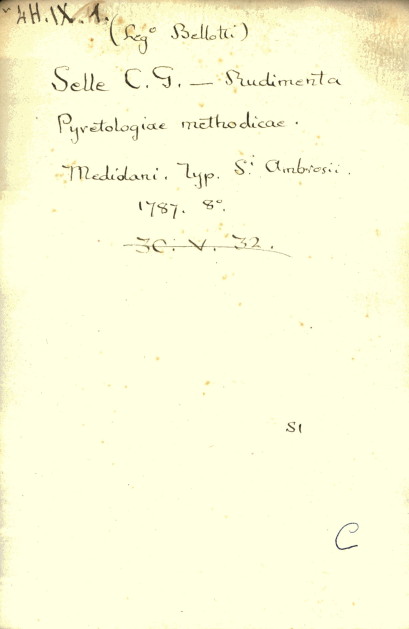 4H.IX.1.
(Leg° Bellotti)
Selle C. G. — Rudimenta
Pyretologiae methodicae.
Mediolani. Typ. S.i Ambrosii.
1787. 8°.
3C. V. 32.
SI
C